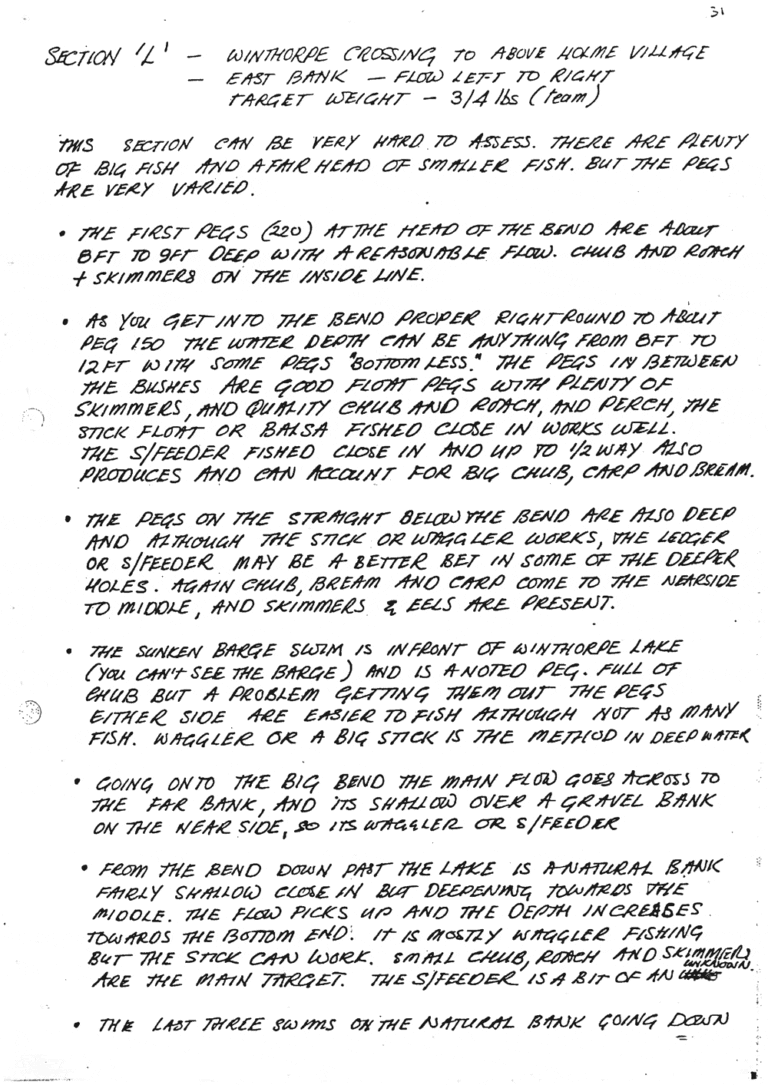 31
SECTION 'L' - WINTHORPE CROSSING TO ABOVE HOLME VILLAGE
- EAST BANK - FLOW LEFT TO RIGHT
TARGET WEIGHT - 3/4 lbs (team)
THIS SECTION CAN BE VERY HARD TO ASSESS. THERE ARE PLENTY
OF BIG FISH AND A FAIR HEAD OF SMALLER FISH. BUT THE PEGS
ARE VERY VARIED.
• THE FIRST PEGS (220) AT THE HEAD OF THE BEND ARE ABOUT
8FT TO 9FT DEEP WITH A REASONABLE FLOW. CHUB AND ROACH
+ SKIMMERS ON THE INSIDE LINE.
• AS YOU GET INTO THE BEND PROPER RIGHT ROUND TO ABOUT
PEG 150 THE WATER DEPTH CAN BE ANYTHING FROM 8FT TO
12FT WITH SOME PEGS "BOTTOMLESS." THE PEGS IN BETWEEN
THE BUSHES ARE GOOD FLOAT PEGS WITH PLENTY OF
SKIMMERS, AND QUALITY CHUB AND ROACH, AND PERCH, THE
STICK FLOAT OR BALSA FISHED CLOSE IN WORKS WELL.
THE S/FEEDER FISHED CLOSE IN AND UP TO 1/2 WAY ALSO
PRODUCES AND CAN ACCOUNT FOR BIG CHUB, CARP AND BREAM.
• THE PEGS ON THE STRAIGHT BELOW THE BEND ARE ALSO DEEP
AND ALTHOUGH THE STICK OR WAGGLER WORKS, THE LEDGER
OR S/FEEDER MAY BE A BETTER BET IN SOME OF THE DEEPER
HOLES. AGAIN CHUB, BREAM AND CARP COME TO THE NEARSIDE
TO MIDDLE, AND SKIMMERS & EELS ARE PRESENT.
• THE SUNKEN BARGE SWIM IS INFRONT OF WINTHORPE LAKE
(YOU CAN'T SEE THE BARGE) AND IS A NOTED PEG. FULL OF
CHUB BUT A PROBLEM GETTING THEM OUT THE PEGS
EITHER SIDE ARE EASIER TO FISH ALTHOUGH NOT AS MANY
FISH. WAGGLER OR A BIG STICK IS THE METHOD IN DEEP WATER
• GOING ONTO THE BIG BEND THE MAIN FLOW GOES ACROSS TO
THE FAR BANK, AND ITS SHALLOW OVER A GRAVEL BANK
ON THE NEAR SIDE, SO ITS WAGGLER OR S/FEEDER
• FROM THE BEND DOWN PAST THE LAKE IS A NATURAL BANK
FAIRLY SHALLOW CLOSE IN BUT DEEPENING TOWARDS THE
MIDDLE. THE FLOW PICKS UP AND THE DEPTH INCREASES
TOWARDS THE BOTTOM END. IT IS MOSTLY WAGGLER FISHING
BUT THE STICK CAN WORK. SMALL CHUB, ROACH AND SKIMMERS
ARE THE MAIN TARGET. THE S/FEEDER IS A BIT OF AN UNKNOWN.
• THE LAST THREE SWIMS ON THE NATURAL BANK GOING DOWN